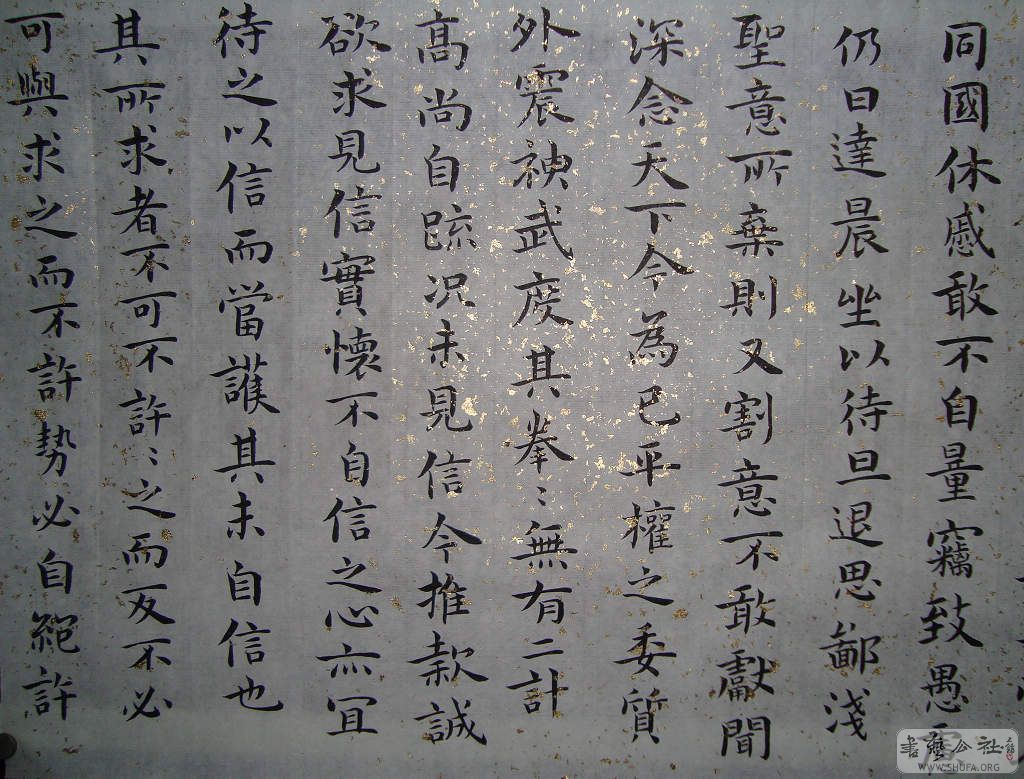 同國休戚敢不自量竊致愚
仍日達晨坐以待旦退思鄙淺
聖意所棄則又割意不敢獻聞
深念天下今為已平權之委質
外震神武度其拳〻無有二計
髙尚自踈况未見信今推款誠
欲求見信實懷不自信之心亦宜
待之以信而當護其未自信也
其所求者不可不許〻之而反不必
可與求之而不許勢必自絕許
書藝公社
WWW.SHUFA.ORG